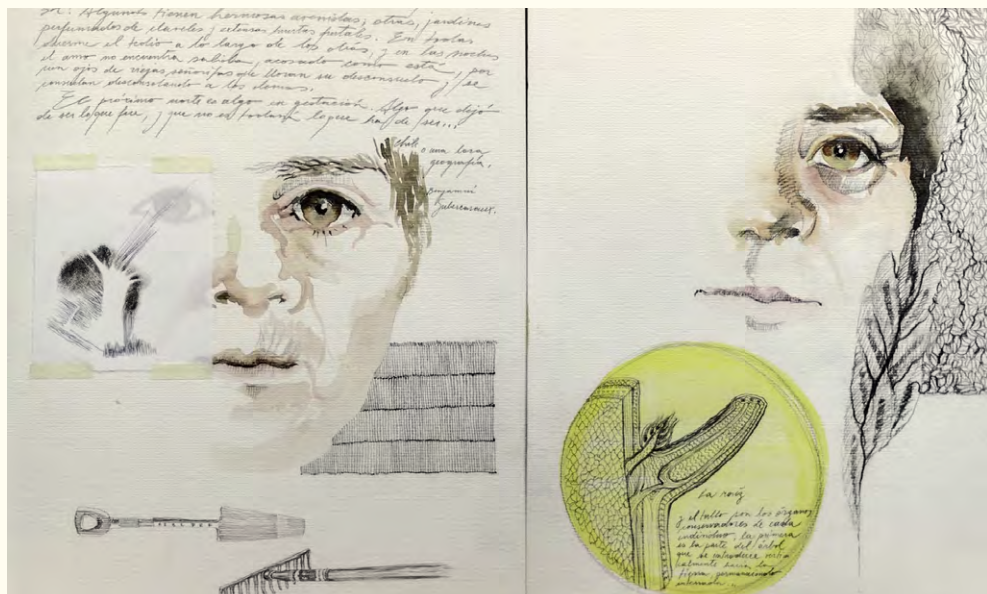 or. Algunas tienen hermosas avenidas, otras, jardines
perfumados de claveles y extensas huertas frutales. En todas
duerme el tedio a lo largo de los días, y en las noches
el amo no encuentra salida, acosado como está, por
un ojos de viejas señoritas que lloran su desconsuelo y se
consuelan desconsolando a los demás.
El próximo norte es algo en gestación. Algo que dejó
de ser lo que fue, y que no es todavía lo que ha de ser...
Chile o una loca
geografía.
Benjamín
Subercaseaux.
La raíz
y el tallo son los órganos
conservadores de cada
individuo, la primera
es la parte del árbol
que se introduce
hacia la
tierra, permaneciendo